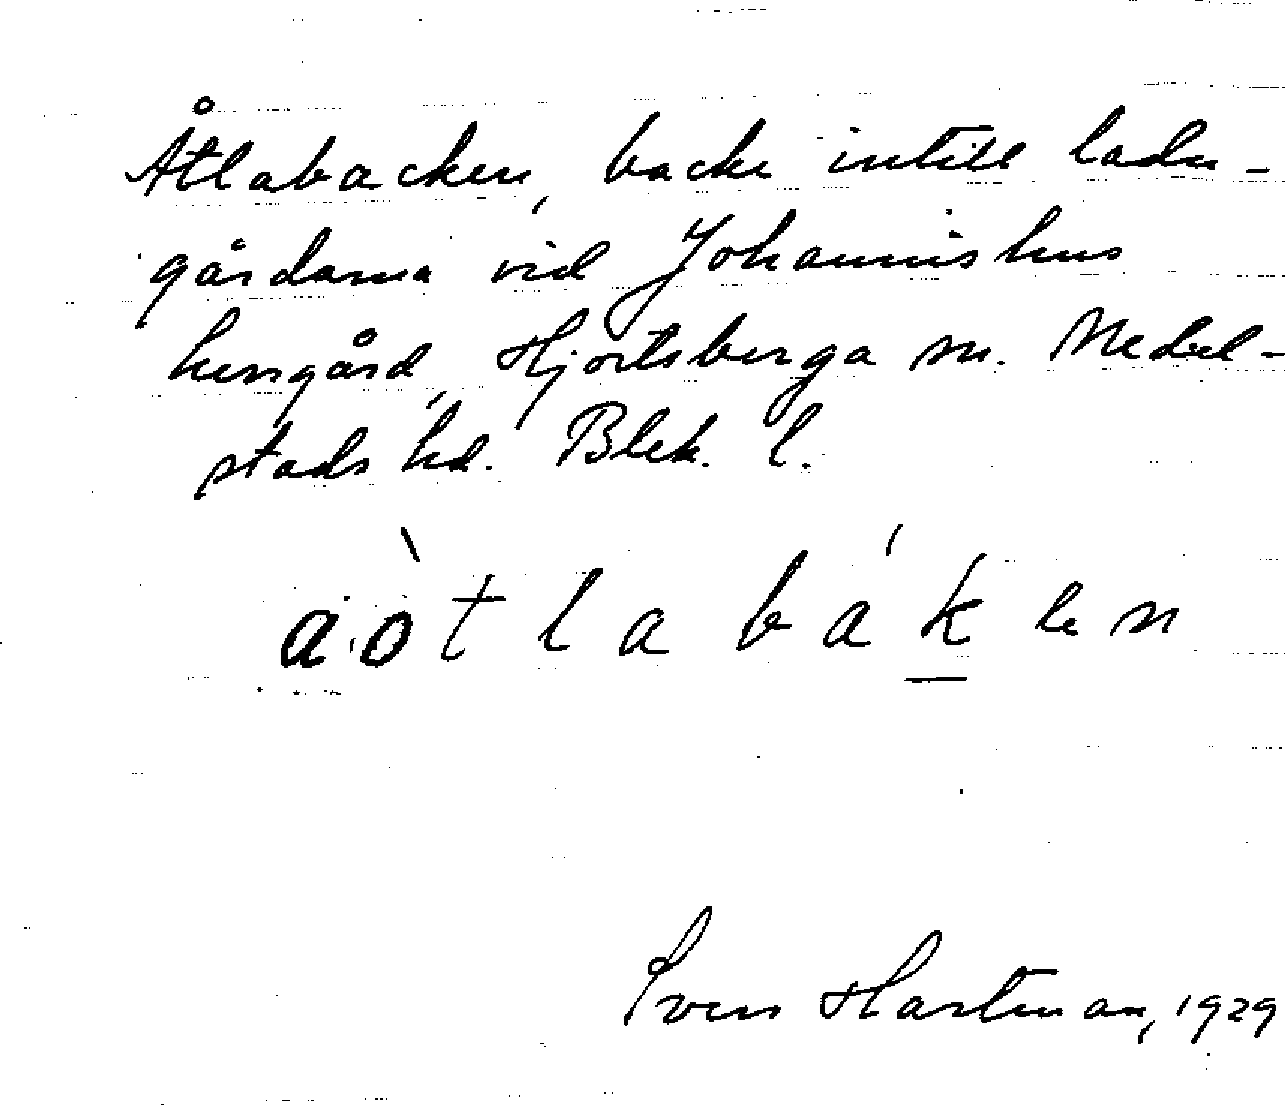 Åtlabacken, backe intill ladu-
gårdarna vid Johannishus
herrgård, Hjortsberga sn. Medel-
stads hd. Blek. l.
aòtlabák̲en
Sven Hartman, 1929